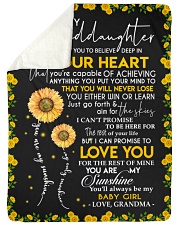 ddaughter
YOU TO BELIEVE DEEP IN
UR HEART
YOU'RE CAPABLE OF ACHIEVING
ANYTHING YOU PUT YOUR MIND TO
THAT YOU WILL NEVER LOSE
YOU EITHER WIN OR LEARN
Just go forth &
aim for the skies
I CAN'T PROMISE
TO BE HERE FOR
The rest of your life
BUT I CAN PROMISE TO
LOVE YOU
FOR THE REST OF MINE
YOU ARE MY
Sunshine
You'll always be my
BABY GIRL
LOVE, GRANDMA
You are my sunshine